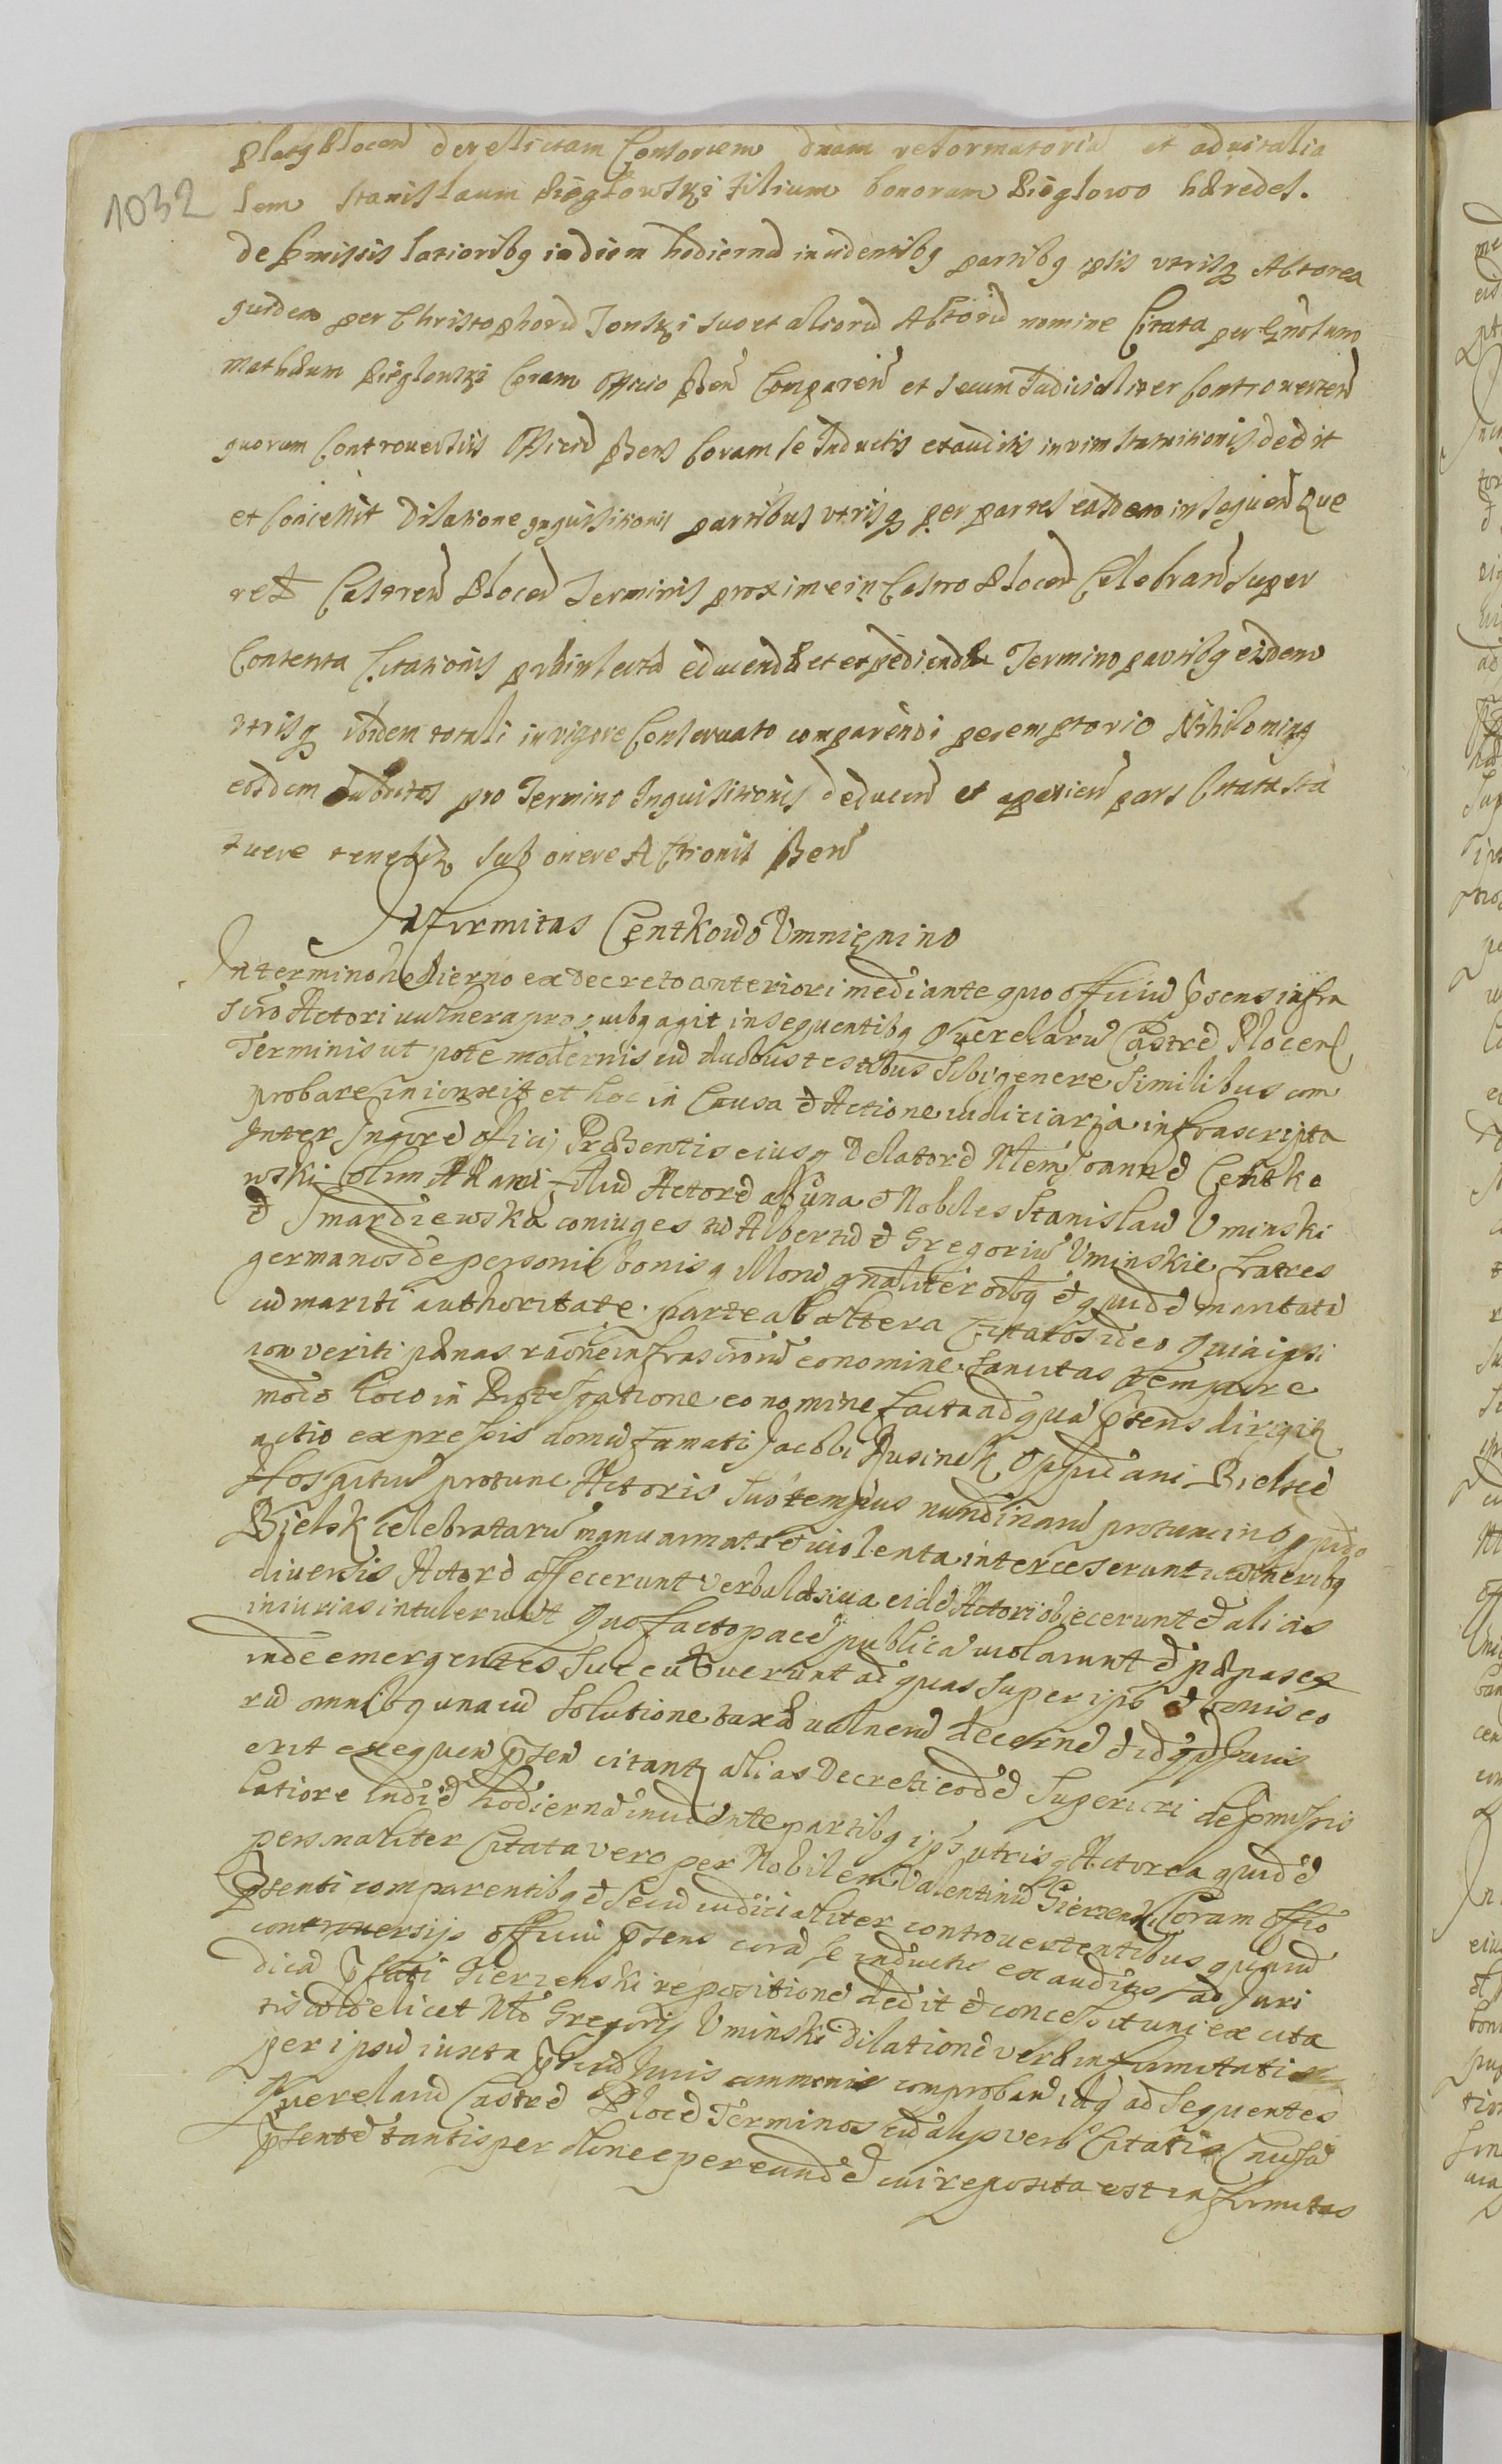 1032
derelictam Consortem dnam reformatoria et aduitalia
lem Stanislaum Bieglowski filium bonorum Bieglowo hæredes.
de pmissis latioribq indiem hodiernū inudentibq partibq ipsis vtrisq Actorea
quidem per Christophorū Jonski suo et aliorū Actorū nomine Citata per Gnosum
Mathæum Bieglowski Coram officio Comparen et secum Judicialiter Controuerten
quorum Controuersiis Officiū Coram se Inductis et auditis in vim statuitionis dedit
et Concessit Dilatione Inquisitionis partibus vtrisq per partes easdem in sequen Que
rel Castren Plocen Terminis proxime in Castro Plocen Celebran super
Contenta Citationis educendæ et expediendæ Termino partibq eisdem
vtrisq ibidem totali in vigore Conseruato comparendi peremptorio Nihilominq
eosdem pro Termino Inquisitionis deducen et aperien pars Citata sta
tuere tenebit sub onere Actionis
Infirmitas Centkowo Umnienino
In termino hodierno ex decreto anteriori mediante quo officiū psens infra
scro Actori uulnera pro quibq agit insequentibq Querelarū Castre Plocens
Terminis ut pote modernis cū duobus testibus sibi genere similibus com
probare inionxit et hoc in Causa et Actione iudiciaria infrascripta
Inter Ingore officij Præsentis eiusq Delatore Nlem Joanne Centko
wski olim Adami filiū Actore ab una et Nobiles Stanislaū Uminski
et Smardzewska coniuges Albertū et Gregoriū Uminskie fratres
germanos de personis bonisq illorū gnaliter oibq et quide maritata
cū mariti authoritate parte ab altera Citatos ideo Quia ipsi
non veriti pænas eo nomine sancitas tempore
modo loco in Protestatione eo nomine facta ad qua psens dirigit
actio expressis domū famati Jacobi Rusinek Oppidani Bielsce
Hospitiū protunc Actoris sub tempus nundinarū protunc in oppido
Bielsk celebratarū manu armata et violenta intercesserunt uulneribq
diuersis Actore affecerunt verbula eide Actori obiecerunt et alias
iniurias intulerunt Quo facto pace publica uiolarunt et pænas ex
inde emergentes succubuerunt ad quas super ipsis et bonis eo
rū omnibq una cū solutione taxæ uulnerū decerne et id quod Juris
erit exequen psen citant alias Decreti eode superiori de pmissis
latiore Indie hodierna inudente partibq ipis utrisq Actorea quide
personaliter Citata vero per Nobilem Valentinū Gierzenski Coram offo
psenti comparentibq et secū iudicialiter controuertentibus quarū
controuersijs officiū psens corā se inductis exauditis ad Juri
dicā pfati Gierzenski repositione dedit et concessit uni ex cita
tis videlicet Nlo Gregorij Uminski dilatione veræ infirmitatis
per ipsū iuxta Juris communis comproban idq ad sequentes
Querelarū Castre Ploce Terminos cū alijs vero Citatis Causa
psente tantisper donec per eunde cui reposita est infirmitas